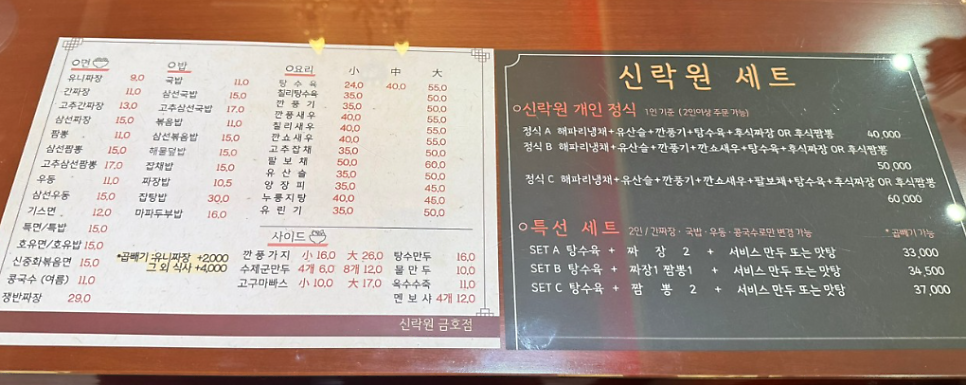 면
유니짜장 9,0
간짜장 11,0
고추간짜장 13,0
삼선짜장 15,0
짬뽕 11,0
삼선짬뽕 15,0
고추삼선짬뽕 17,0
우동 11,0
삼선우동 15,0
기스면 12,0
특면/특밥 15,0
호유면/호유밥 15,0
신중화볶음면 15,0
콩국수 (여름) 11,0
쟁반짜장 29,0
밥
국밥 11,0
삼선국밥 15,0
고추삼선국밥 17,0
볶음밥 11,0
삼선볶음밥 15,0
해물덮밥 15,0
잡채밥 15,0
짜장밥 10,5
잡탕밥 30,0
마파두부밥 16,0
*곱빼기 유니짜장 +2,000
그 외 식사 +4,000
요리 小 中 大
탕수육 24,0 40,0 55,0
칠리탕수육 35,0 50,0
깐풍기 35,0 50,0
깐풍새우 40,0 55,0
칠리새우 40,0 55,0
깐쇼새우 40,0 55,0
고추잡채 35,0 50,0
팔보채 50,0 60,0
유산슬 60,0
양장피 35,0 45,0
누룽지탕 40,0 55,0
유린기 35,0 50,0
사이드
깐풍가지 小 16,0 大 26,0 탕수만두 16,0
수제군만두 4개 6,0 8개 12,0 물만두 10,0
고구마빠스 小 10,0 大 17,0 옥수수죽 11,0
멘보샤 4개 12,0
신락원 금호점
신락원 세트
신락원 개인 정식 1인 기준 (2인이상 주문 가능)
정식 A 해파리냉채+유산슬+깐풍기+탕수육+후식짜장 OR 후식짬뽕 40,000
정식 B 해파리냉채+유산슬+깐풍기+깐쇼새우+탕수육+후식짜장 OR 후식짬뽕
50,000
정식 C 해파리냉채+유산슬+깐풍기+깐쇼새우+팔보채+탕수육+후식짜장 OR 후식짬뽕
60,000
특선 세트 2인 / 간짜장 · 국밥 · 우동 · 콩국수로만 변경 가능 * 곱빼기 가능
SET A 탕수육 + 짜 장 2 + 서비스 만두 또는 맛탕 33,000
SET B 탕수육 + 짜장1 짬뽕1 + 서비스 만두 또는 맛탕 34,500
SET C 탕수육 + 짬 뽕 2 + 서비스 만두 또는 맛탕 37,000